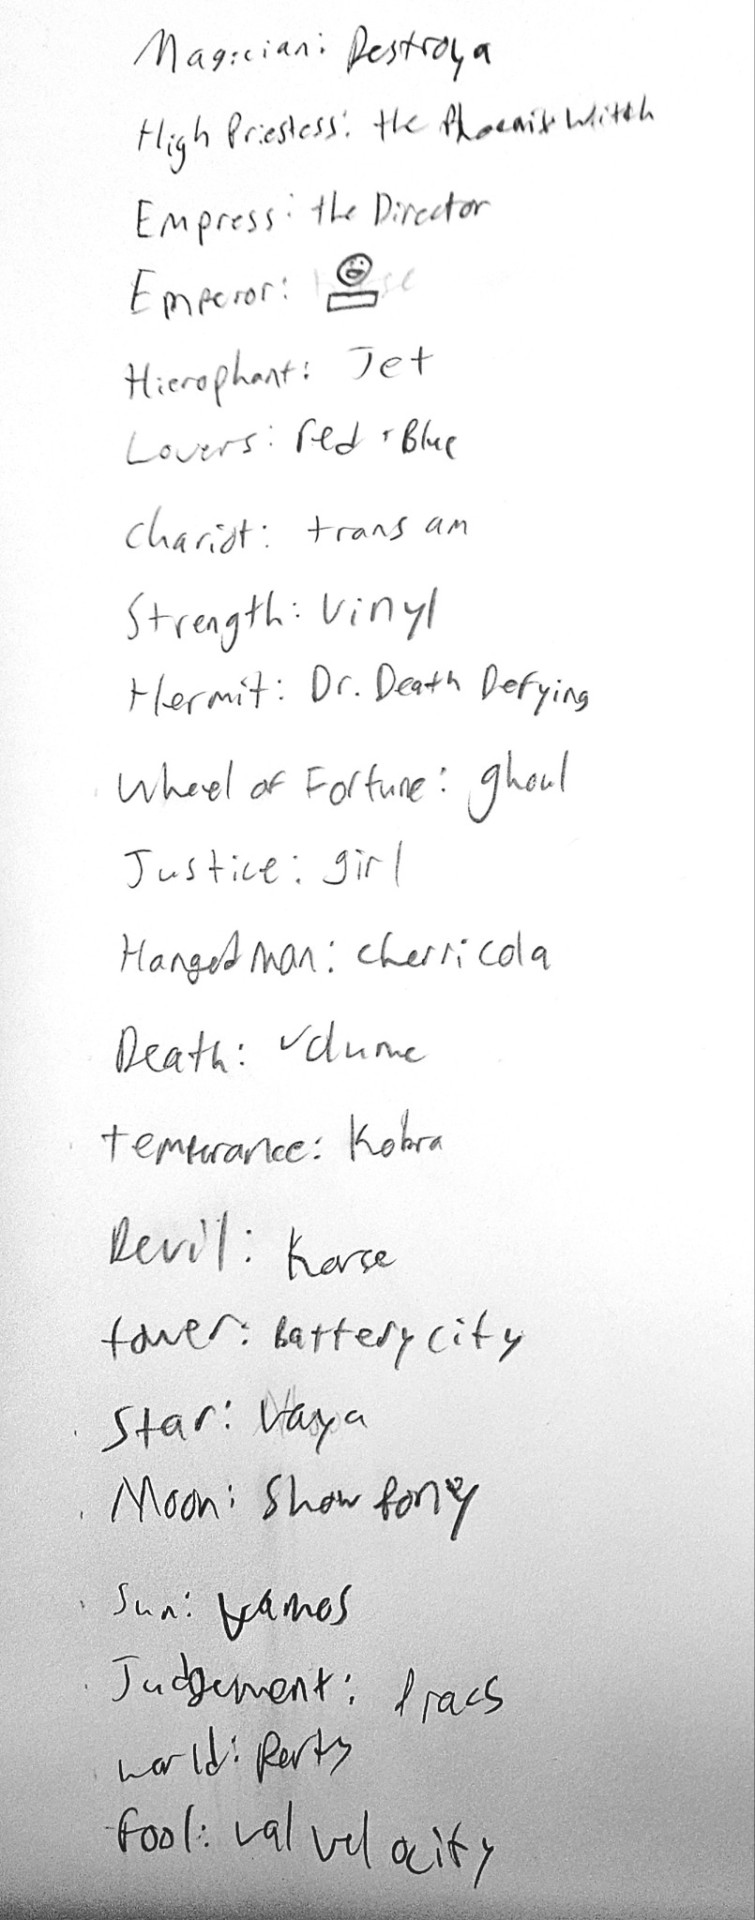 Magician: Destroya
High Priestess: the Phoenix Witch
Empress: the Director
Emperor:
Hierophant: Jet
Lovers: red + Blue
Chariot: trans am
Strength: Vinyl
Hermit: Dr. Death Defying
Wheel of Fortune: ghoul
Justice: girl
Hanged man: cherri cola
Death: volume
temperance: Kobra
Devil: Korse
tower: Battery city
Star: Vaya
Moon: Show pony
Sun: Vamos
Judgement:
world: Party
fool: val velocity